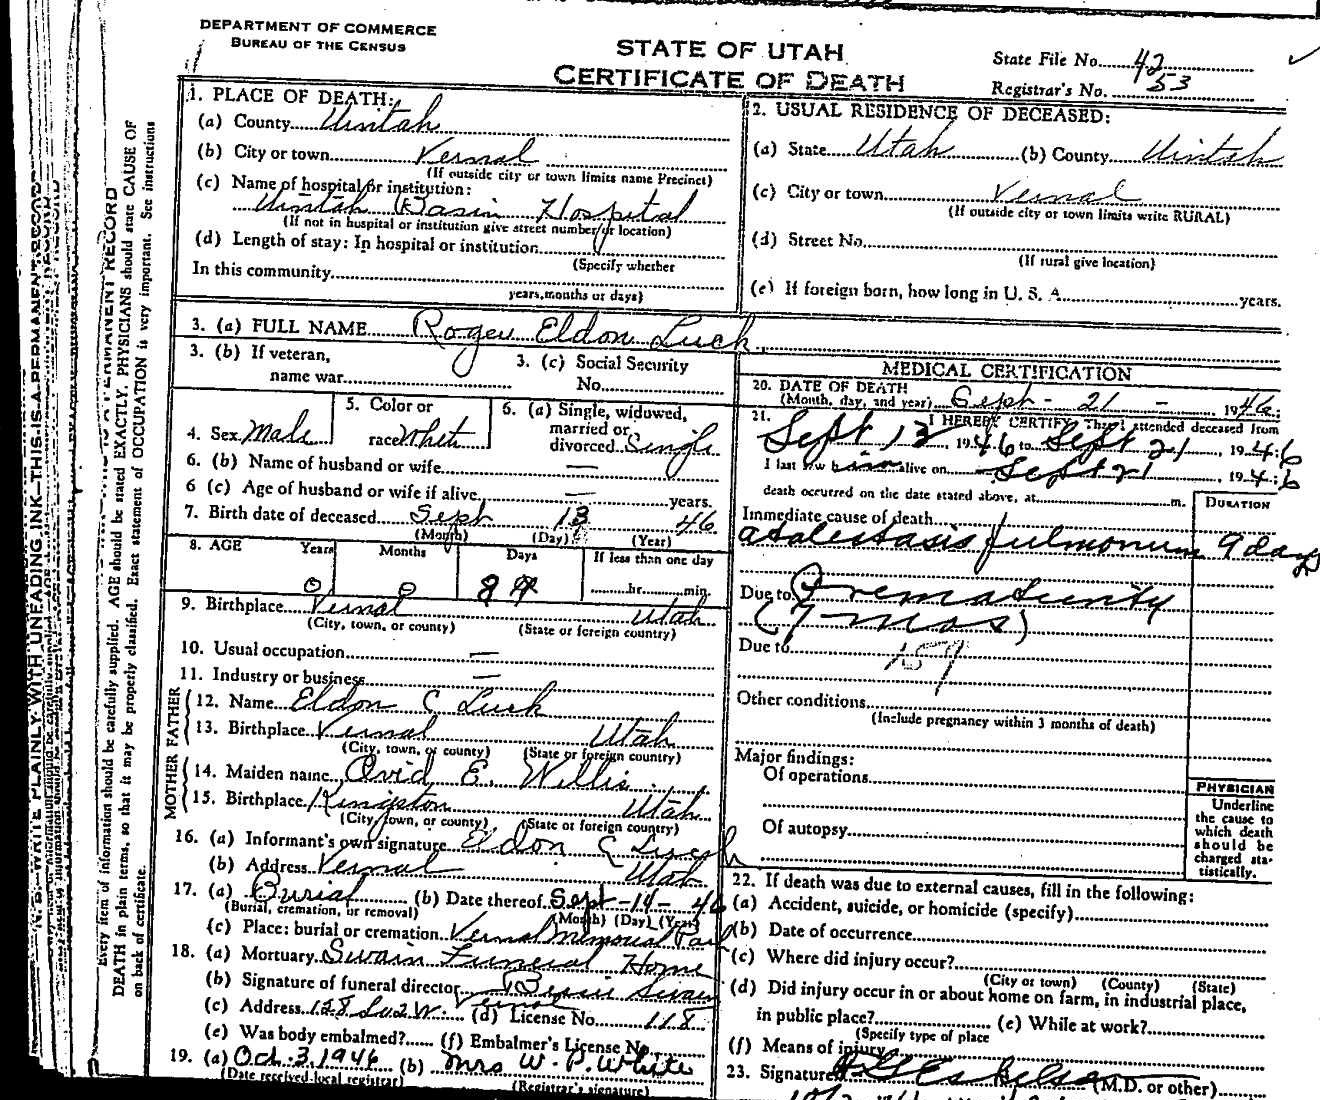 DEPARTMENT OF COMMERCE
BUREAU OF THE CENSUS
STATE OF UTAH
CERTIFICATE OF DEATH
State File No. 42
Registrar's No. 53
1. PLACE OF DEATH:
(a) County Uintah
(b) City or town Vernal
(If outside city or town limits name Precinct)
(c) Name of hospital or institution:
Uintah Basin Hospital
(If not in hospital or institution give street number or location)
(d) Length of stay: In hospital or institution
(Specify whether
In this community
years, months or days)
2. USUAL RESIDENCE OF DECEASED:
(a) State Utah (b) County Uintah
(c) City or town Vernal
(If outside city or town limits write RURAL)
(d) Street No.
(If rural give location)
(e) If foreign born, how long in U. S. A. years.
3. (a) FULL NAME Roger Eldon Luck
3. (b) If veteran,
name war
3. (c) Social Security
No.
4. Sex Male
5. Color or
race White
6. (a) Single, widowed,
married or
divorced Single
6. (b) Name of husband or wife —
6 (c) Age of husband or wife if alive, — years.
7. Birth date of deceased Sept 13 46
(Month) (Day) (Year)
8. AGE Years Months Days If less than one day
0 0 8 hr. min.
9. Birthplace Vernal Utah
(City, town, or county) (State or foreign country)
10. Usual occupation —
11. Industry or business —
FATHER
12. Name Eldon C Luck
13. Birthplace Vernal Utah
(City, town, or county) (State or foreign country)
MOTHER
14. Maiden name Ovid E. Willis
15. Birthplace Kingston Utah
(City, town, or county) (State or foreign country)
16. (a) Informant's own signature Eldon C Luck
(b) Address Vernal Utah
17. (a) Burial (b) Date thereof Sept-14-46
(Burial, cremation, or removal) (Month) (Day) (Year)
(c) Place: burial or cremation Vernal Memorial Park
18. (a) Mortuary Swain Funeral Home
(b) Signature of funeral director Bessie Swain
(c) Address 128 So 2 W. Vernal (d) License No. 118
(e) Was body embalmed? (f) Embalmer's License No.
19. (a) Oct. 3, 1946 (b) Mrs W. P. White
(Date received local registrar) (Registrar's signature)
MEDICAL CERTIFICATION
20. DATE OF DEATH
(Month, day, and year) Sept - 21 - 1946
21. I HEREBY CERTIFY That I attended deceased from
Sept 13 1946 to Sept 21, 1946
I last saw him alive on Sept 21, 1946
death occurred on the date stated above, at m.
DURATION
Immediate cause of death
atalectasis pulmonum 9 days
Due to Prematurity
(7 mos)
Due to
159
Other conditions
(Include pregnancy within 3 months of death)
Major findings:
Of operations
Of autopsy
PHYSICIAN
Underline
the cause to
which death
should be
charged sta-
tistically.
22. If death was due to external causes, fill in the following:
(a) Accident, suicide, or homicide (specify)
(b) Date of occurrence
(c) Where did injury occur?
(City or town) (County) (State)
(d) Did injury occur in or about home on farm, in industrial place,
in public place? (e) While at work?
(Specify type of place
(f) Means of injury
23. Signature (M.D. or other)
N. B.—WRITE PLAINLY WITH UNFADING INK—THIS IS A PERMANENT RECORD
Every item of information should be carefully supplied. AGE should be stated EXACTLY. PHYSICIANS should state CAUSE OF
DEATH in plain terms, so that it may be properly classified. Exact statement of OCCUPATION is very important. See instructions
on back of certificate.